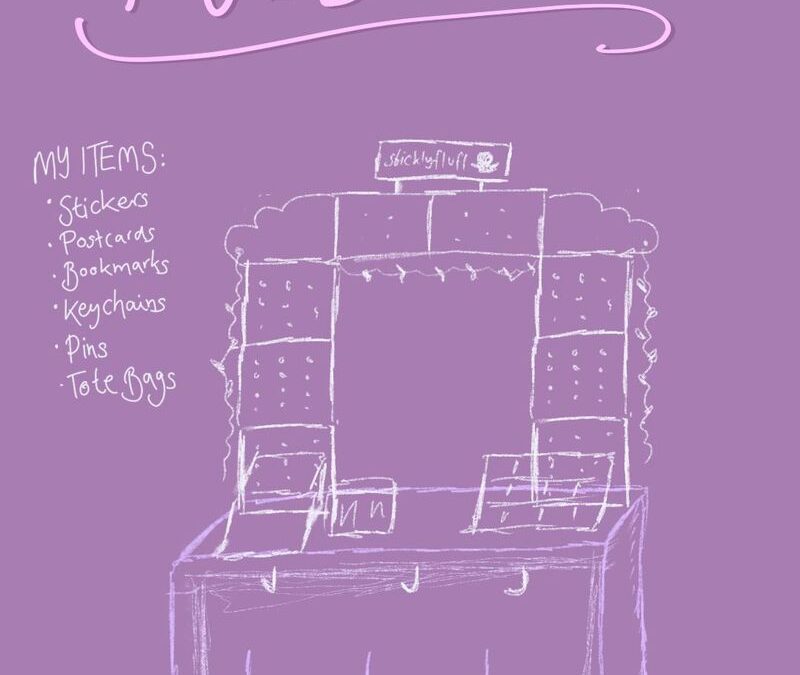 MY ITEMS:
• Stickers
• Postcards
• Bookmarks
• Keychains
• Pins
• Tote Bags
sticklyfluff